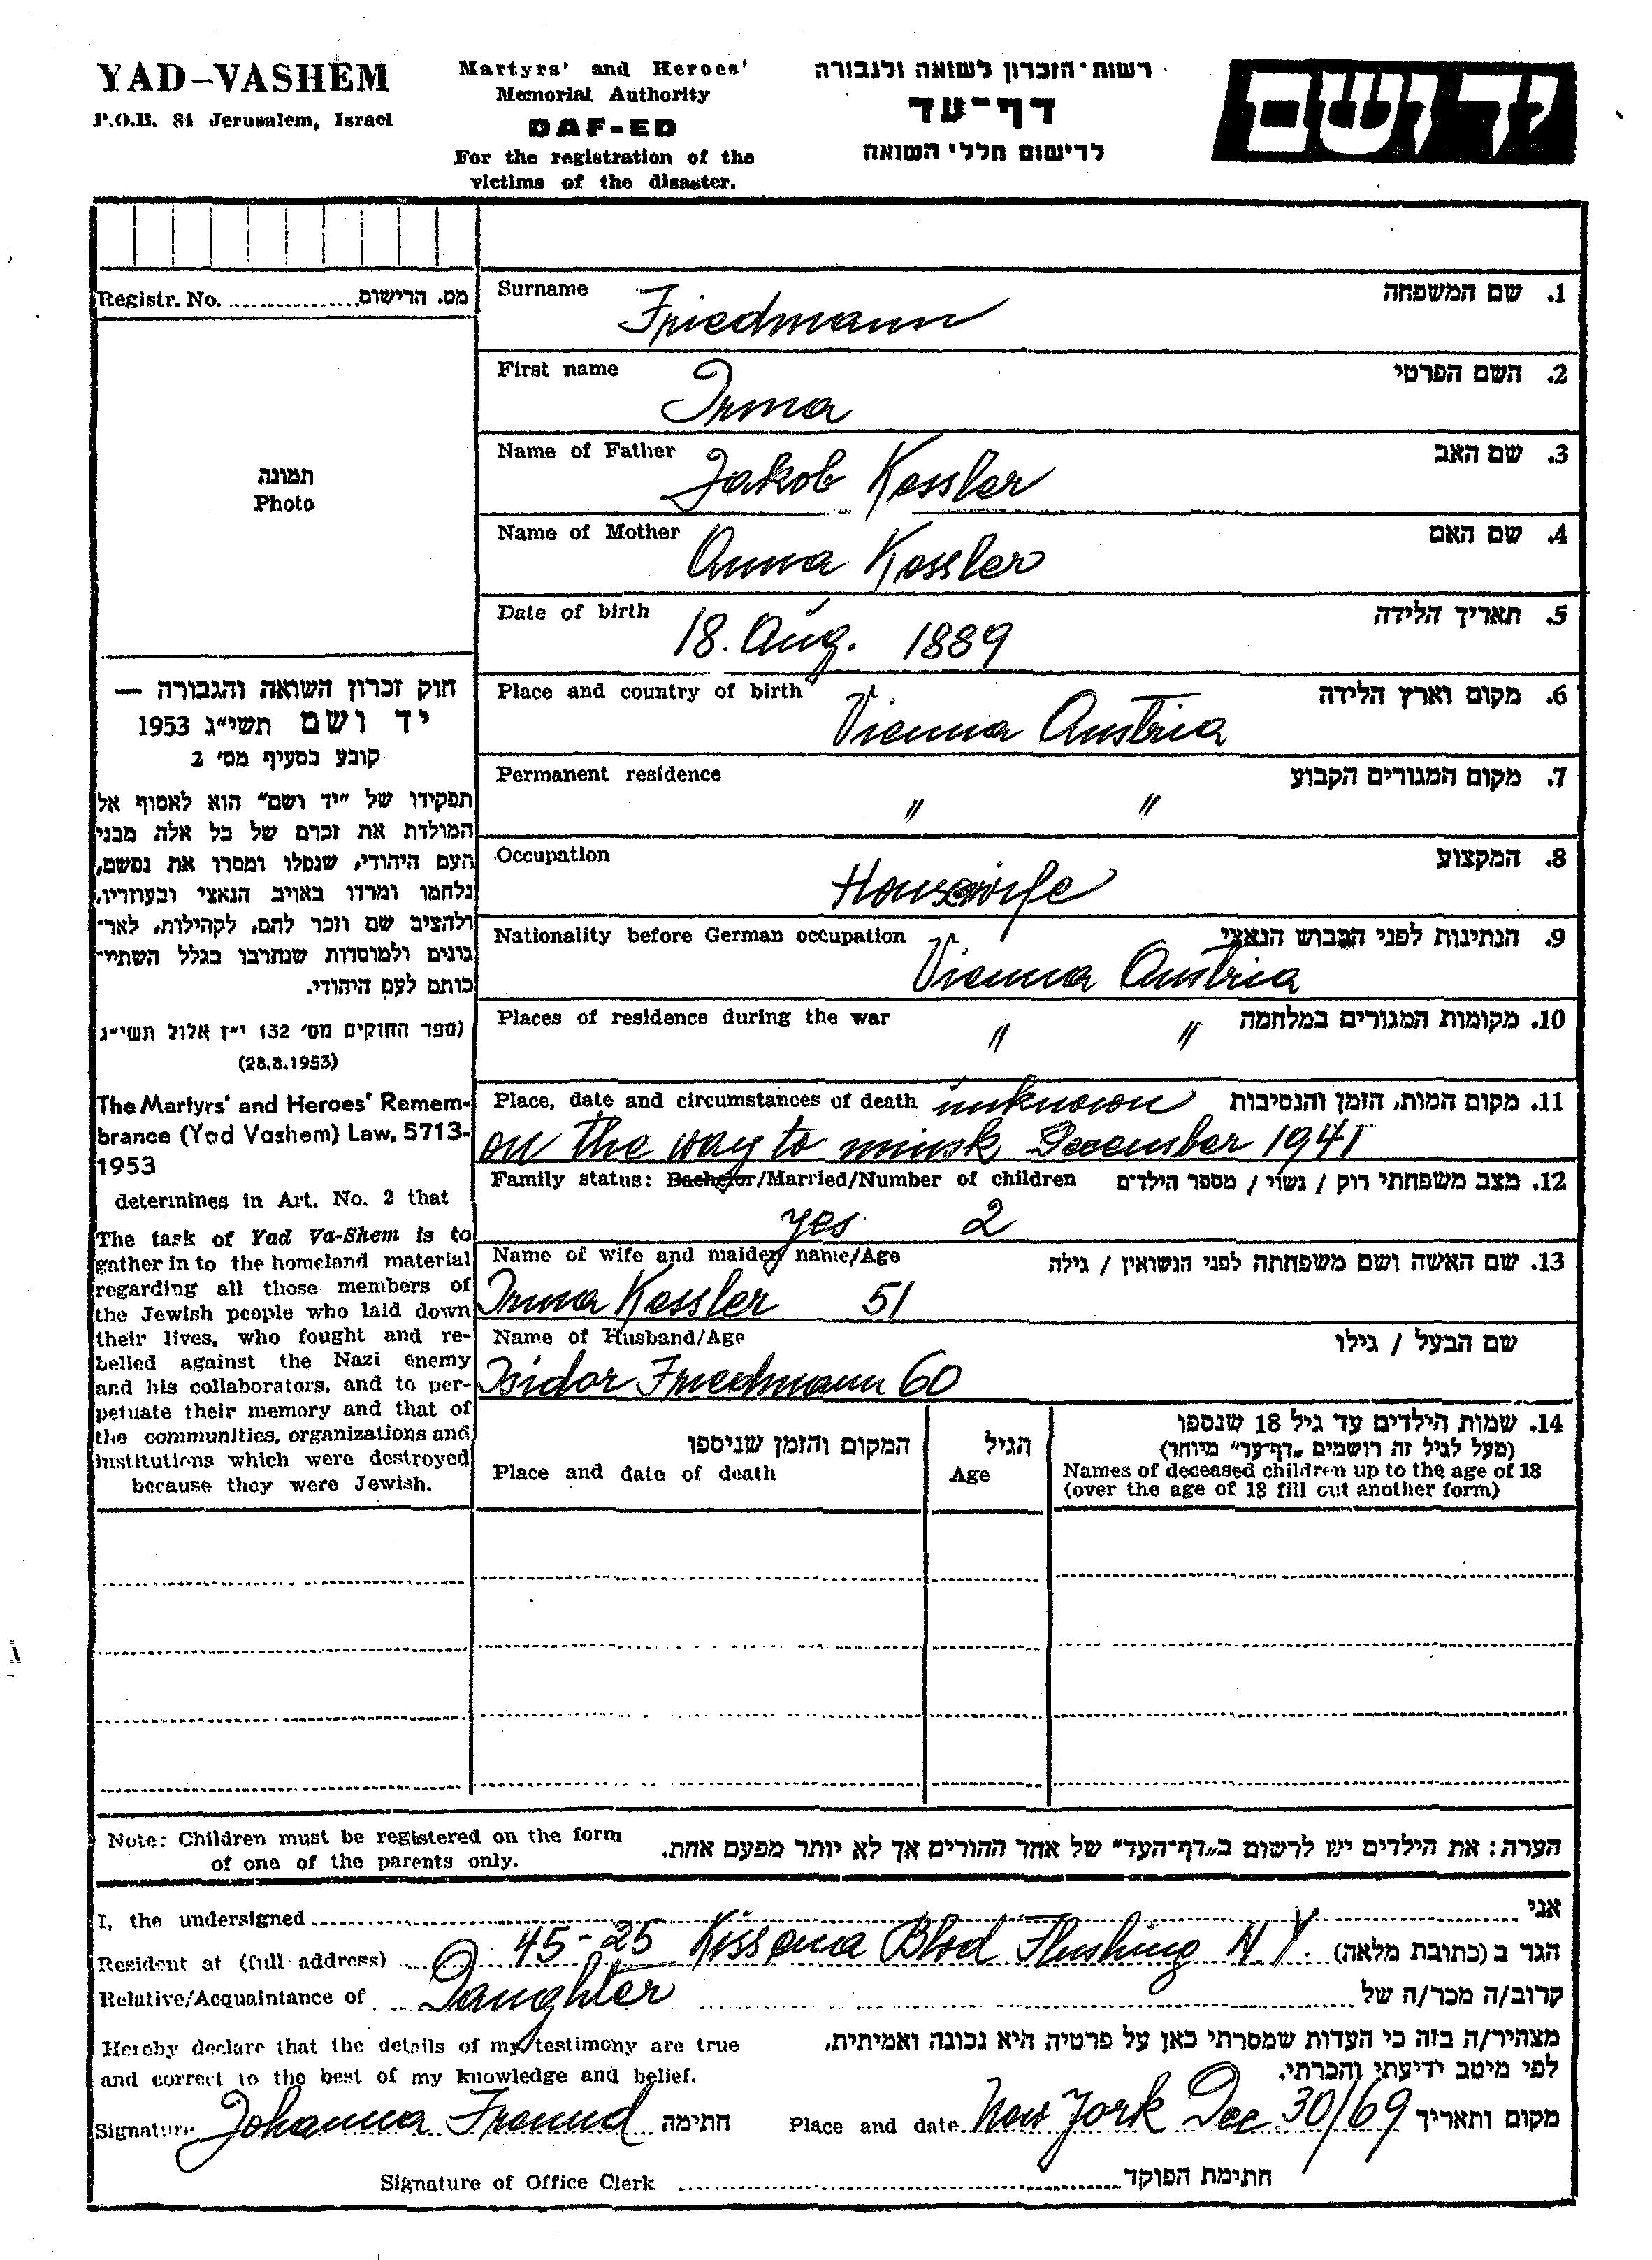 YAD-VASHEM
P.O.B. 84 Jerusalem, Israel
Martyrs' and Heroes'
Memorial Authority
DAF-ED
For the registration of the
victims of the disaster.
רשות-הזכרון לשואה ולגבורה
דף-עד
לרישום חללי השואה
יד ושם
Registr. No. .............. מס. הרישום
תמונה
Photo
חוק זכרון השואה והגבורה —
יד ושם תשי״ג 1953
קובע בסעיף מס׳ 2
תפקידו של ״יד ושם״ הוא לאסוף אל
המולדת את זכרם של כל אלה מבני
העם היהודי, שנפלו ומסרו את נפשם,
נלחמו ומרדו באויב הנאצי ובעוזריו,
ולהציב שם וזכר להם, לקהילות, לאר-
גונים ולמוסדות שנחרבו בגלל השתיי-
כותם לעם היהודי.
(ספר החוקים מס׳ 132 י״ז אלול תשי״ג
(28.8.1953)
The Martyrs' and Heroes' Remem-
brance (Yad Vashem) Law, 5713-
1953
determines in Art. No. 2 that
The task of Yad Va-Shem is to
gather in to the homeland material
regarding all those members of
the Jewish people who laid down
their lives, who fought and re-
belled against the Nazi enemy
and his collaborators, and to per-
petuate their memory and that of
the communities, organizations and
institutions which were destroyed
because they were Jewish.
Surname Friedmann 1. שם המשפחה
First name Irma 2. השם הפרטי
Name of Father Jakob Kessler 3. שם האב
Name of Mother Anna Kessler 4. שם האם
Date of birth 18. Aug. 1889 5. תאריך הלידה
Place and country of birth Vienna Austria 6. מקום וארץ הלידה
Permanent residence " " 7. מקום המגורים הקבוע
Occupation Housewife 8. המקצוע
Nationality before German occupation 9. הנתינות לפני הכבוש הנאצי
Vienna Austria
Places of residence during the war " " 10. מקומות המגורים במלחמה
Place, date and circumstances of death unknown 11. מקום המות, הזמן והנסיבות
on the way to minsk December 1941
Family status: Bachelor/Married/Number of children 12. מצב משפחתי רוק / נשוי / מספר הילדים
yes 2
Name of wife and maiden name/Age 13. שם האשה ושם משפחתה לפני הנשואין / גילה
Irma Kessler 51
Name of Husband/Age שם הבעל / גילו
Isidor Friedmann 60
14. שמות הילדים עד גיל 18 שנספו
(מעל לגיל זה רושמים ״דף-עד״ מיוחד)
Names of deceased children up to the age of 18
(over the age of 18 fill out another form)
הגיל
Age
המקום והזמן שניספו
Place and date of death
Note: Children must be registered on the form
of one of the parents only.
הערה: את הילדים יש לרשום ב״דף-העד״ של אחד ההורים אך לא יותר מפעם אחת.
I, the undersigned אני
Resident at (full address) 45-25 Kissena Blvd Flushing N.Y. הגר ב (כתובת מלאה)
Relative/Acquaintance of Daughter קרוב/ה מכר/ה של
Hereby declare that the details of my testimony are true
and correct to the best of my knowledge and belief.
מצהיר/ה בזה כי העדות שמסרתי כאן על פרטיה היא נכונה ואמיתית,
לפי מיטב ידיעתי והכרתי.
Signature Johanna Freund חתימה
Place and date New York Dec 30/69 מקום ותאריך
Signature of Office Clerk חתימת הפוקד